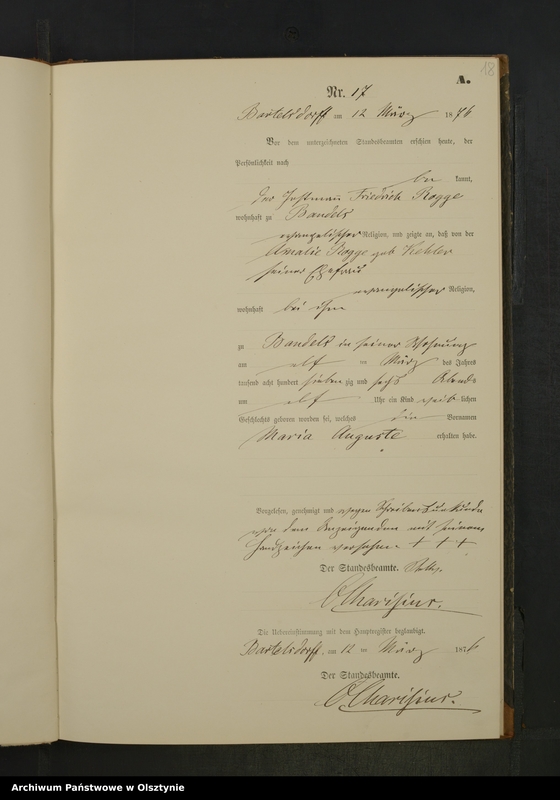 18
A.
Nr. 17
Bartelsdorff am 12 März 1876
Vor dem unterzeichneten Standesbeamten erschien heute, der
Persönlichkeit nach
be kannt,
der Instmann Friedrich Rogge
wohnhaft zu Bandels
evangelischer Religion, und zeigte an, daß von der
Amalie Rogge geb Kehler
seiner Ehefrau
evangelischer Religion,
wohnhaft bei ihm
zu Bandels in seiner Wohnung
am elf ten März des Jahres
tausend acht hundert sieben zig und sechs Abends
um elf Uhr ein Kind weib lichen
Geschlechts geboren worden sei, welches die Vornamen
Maria Auguste erhalten habe.
Vorgelesen, genehmigt und wegen Schreibensunkunde
von dem Anzeigenden mit seinem
Handzeichen versehen. + + +
Der Standesbeamte.
Die Uebereinstimmung mit dem Hauptregister beglaubigt.
Bartelsdorff, am 12 ten März 1876
Der Standesbeamte.
Archiwum Państwowe w Olsztynie